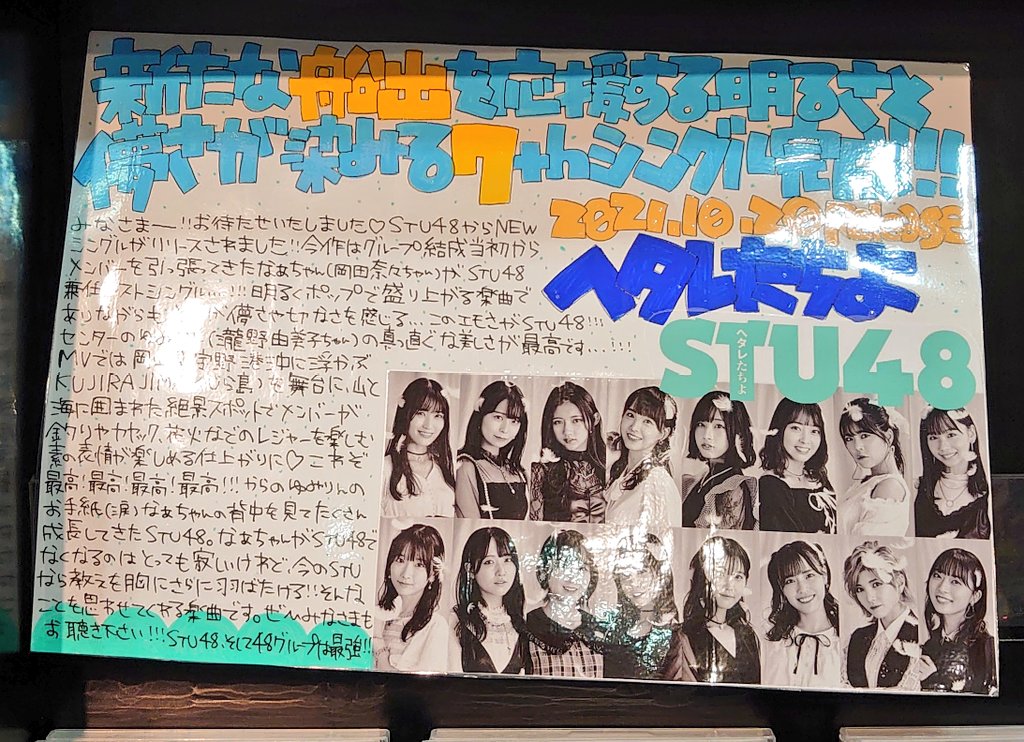 新たな船出を応援する、明るさと
儚さが染みる7thシングル完成!!
2021.10.20 release
ヘタレたちよ
STU48
ヘタレたちよ
みなさまー!!お待たせいたしました♡STU48からNEW
シングルがリリースされました!!今作はグループ結成当初から
メンバーを引っ張ってきたなぁちゃん(岡田奈々ちゃん)がSTU48
兼任ラストシングル!!!明るくポップで盛り上がる楽曲で
ありながらも 儚さや切なさを感じる…このエモさがSTU48!!!
センターのゆみりん(瀧野由美子ちゃん)の真っ直ぐな美しさが最高です…!!!
MVでは岡山 宇野港沖に浮かぶ
KUJIRAJIMA(くじら島)を舞台に、山と
海に囲まれた絶景スポットでメンバーが
釣りやカヤック、花火などのレジャーを楽しむ
素の表情が楽しめる仕上がりに♡これぞ
最高!最高!最高!最高!!!からのゆみりんの
お手紙(涙)なぁちゃんの背中を見てたくさん
成長してきたSTU48。なぁちゃんがSTU48で
なくなるのはとっても寂しいけれど、今のSTU
なら教えを胸にさらに羽ばたける!!そんな
ことも思わせてくれる楽曲です。ぜひみなさまも
お聴き下さい!!!STU48、そして48グループは最強!!